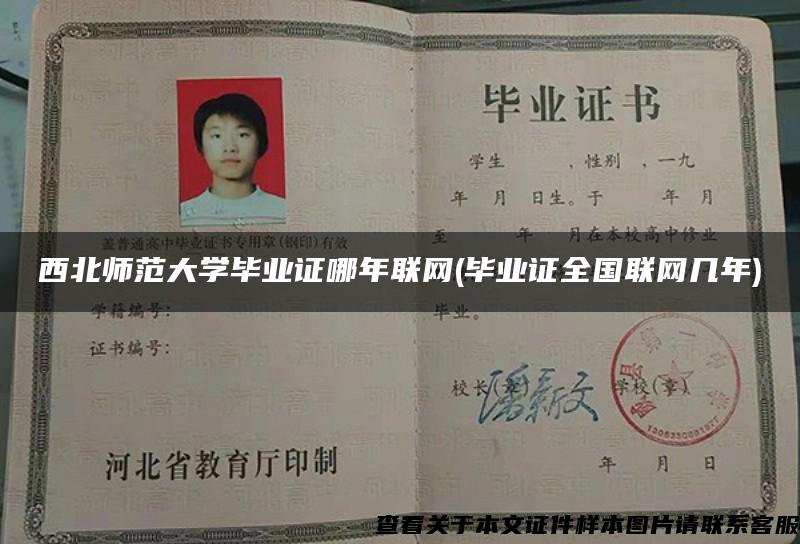 毕业证书
学生 ，性别 ，一九
年 月 日生。于 年 月
至 年 月在本校高中修业
盖普通高中毕业证书专用章(钢印)有效
西北师范大学毕业证哪年联网(毕业证全国联网几年)
毕业。
学籍编号：
证书编号：
校长(章) 学校(章)
河北省教育厅印制
年 月 日
查看关于本文证件样本图片请联系客服